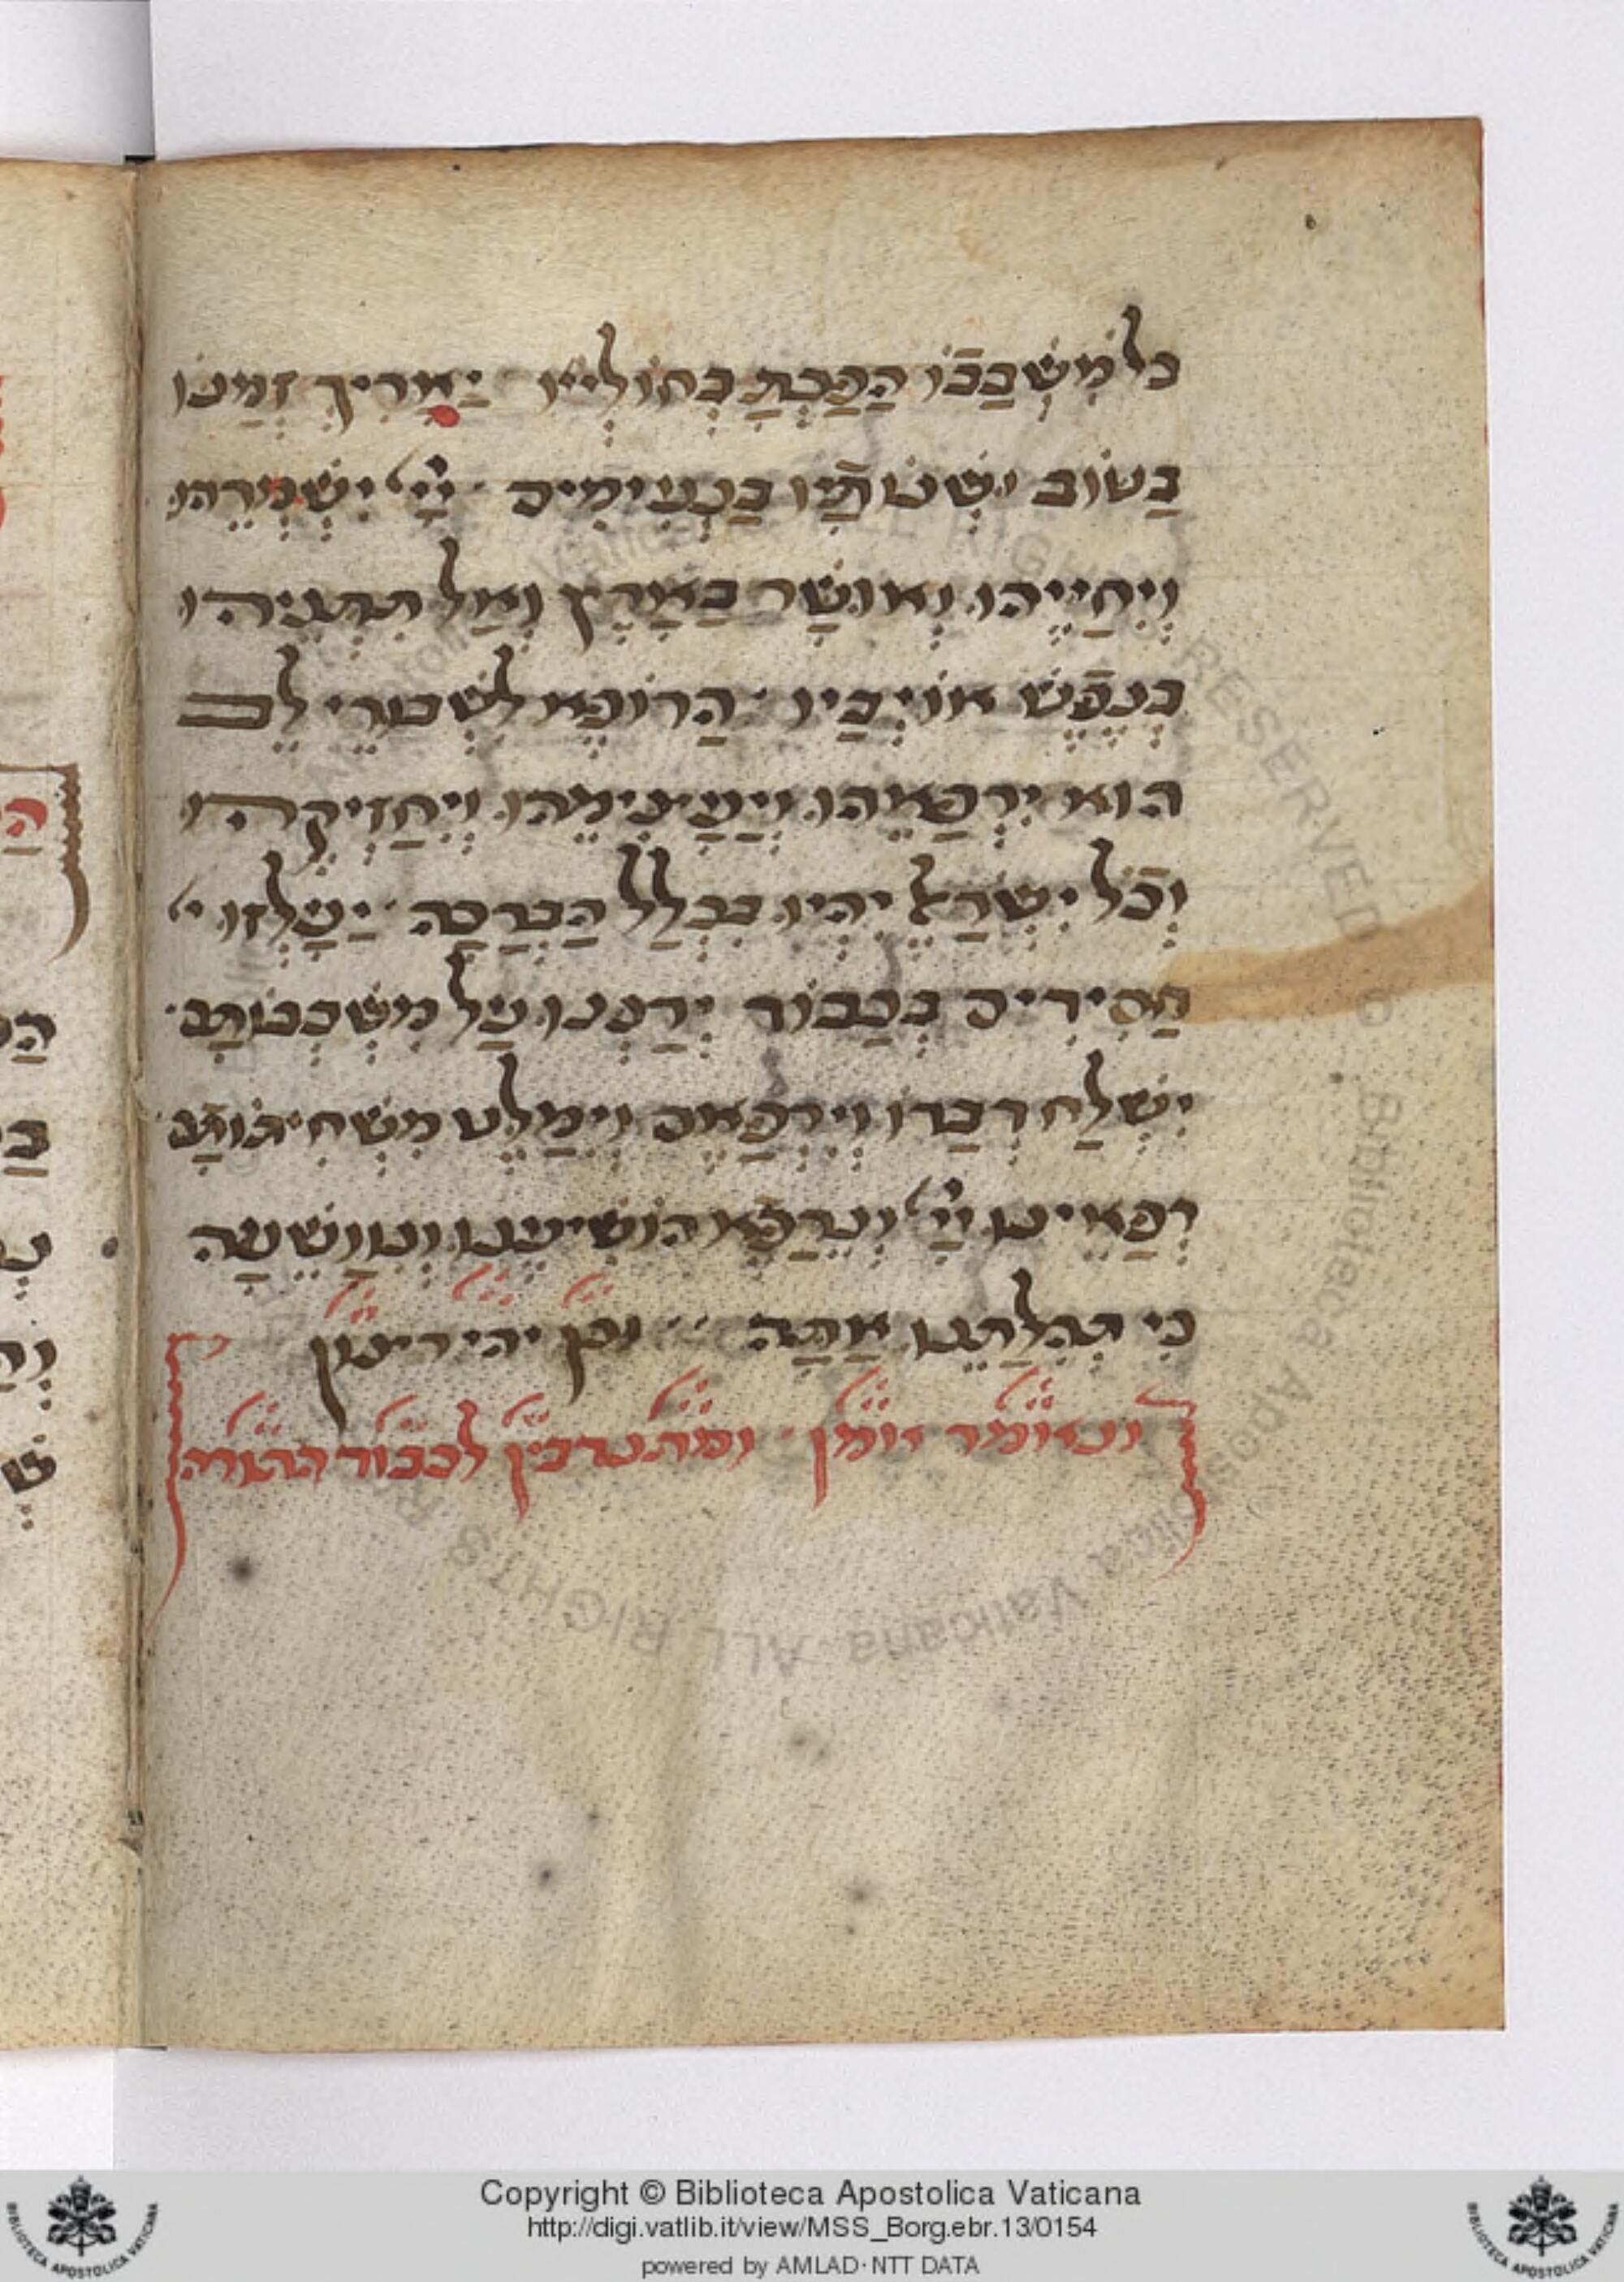 כל מִשְׁכַּבּוֹ הָפַכְתָּ בְחוֹלְיוֹ יַאֲרִיךְ זְמַנּוֹ
בַּטוֹב וּשְׁנוֹתָיו בַּנְּעִימִים · יְיָ יִשְׁמְרֵהוּ
וִיחַיֵיהוּ וְאוּשַּׁר בָּאָרֶץ וְאַל תִּתְּנֵיהוּ
בְּנֶפֶשׁ אוֹיְבָיו · הָרוֹפֵא לִשְׁבוּרֵי לֵב
הוּא יִרְפָּאֵהוּ וְיַעֲצִימֵהוּ וִיחַזְּיקֵהוּ
וְכֹל יִשְׂרָאֵל יִהְיוּ בִּכְלַל הַבְּרָכָה · יַעְלְזוּ י
חֲסִידִים בְּכָבוֹד יְרַנְּנוּ עַל מִשְׁכְּבוֹתָם ·
יִשְׁלַח דְּבָרוֹ וְיִרְפָּאֵם וִימַלֵּט מִשְּׁחִיתוֹתָם
רְפָאֵינוּ יְיָ וְנֵרָפֵא הוֹשִׁיעֵנוּ וְנִוָּשֵׁעָה
כִּי תְהִלָּתֵנוּ אָתָּה ·· וכן יהי רצון
ונאומר אומן · ומתנדבין לכבוד התורה
Copyright © Biblioteca Apostolica Vaticana
http://digi.vatlib.it/view/MSS_Borg.ebr.13/0154
powered by AMLAD·NTT DATA